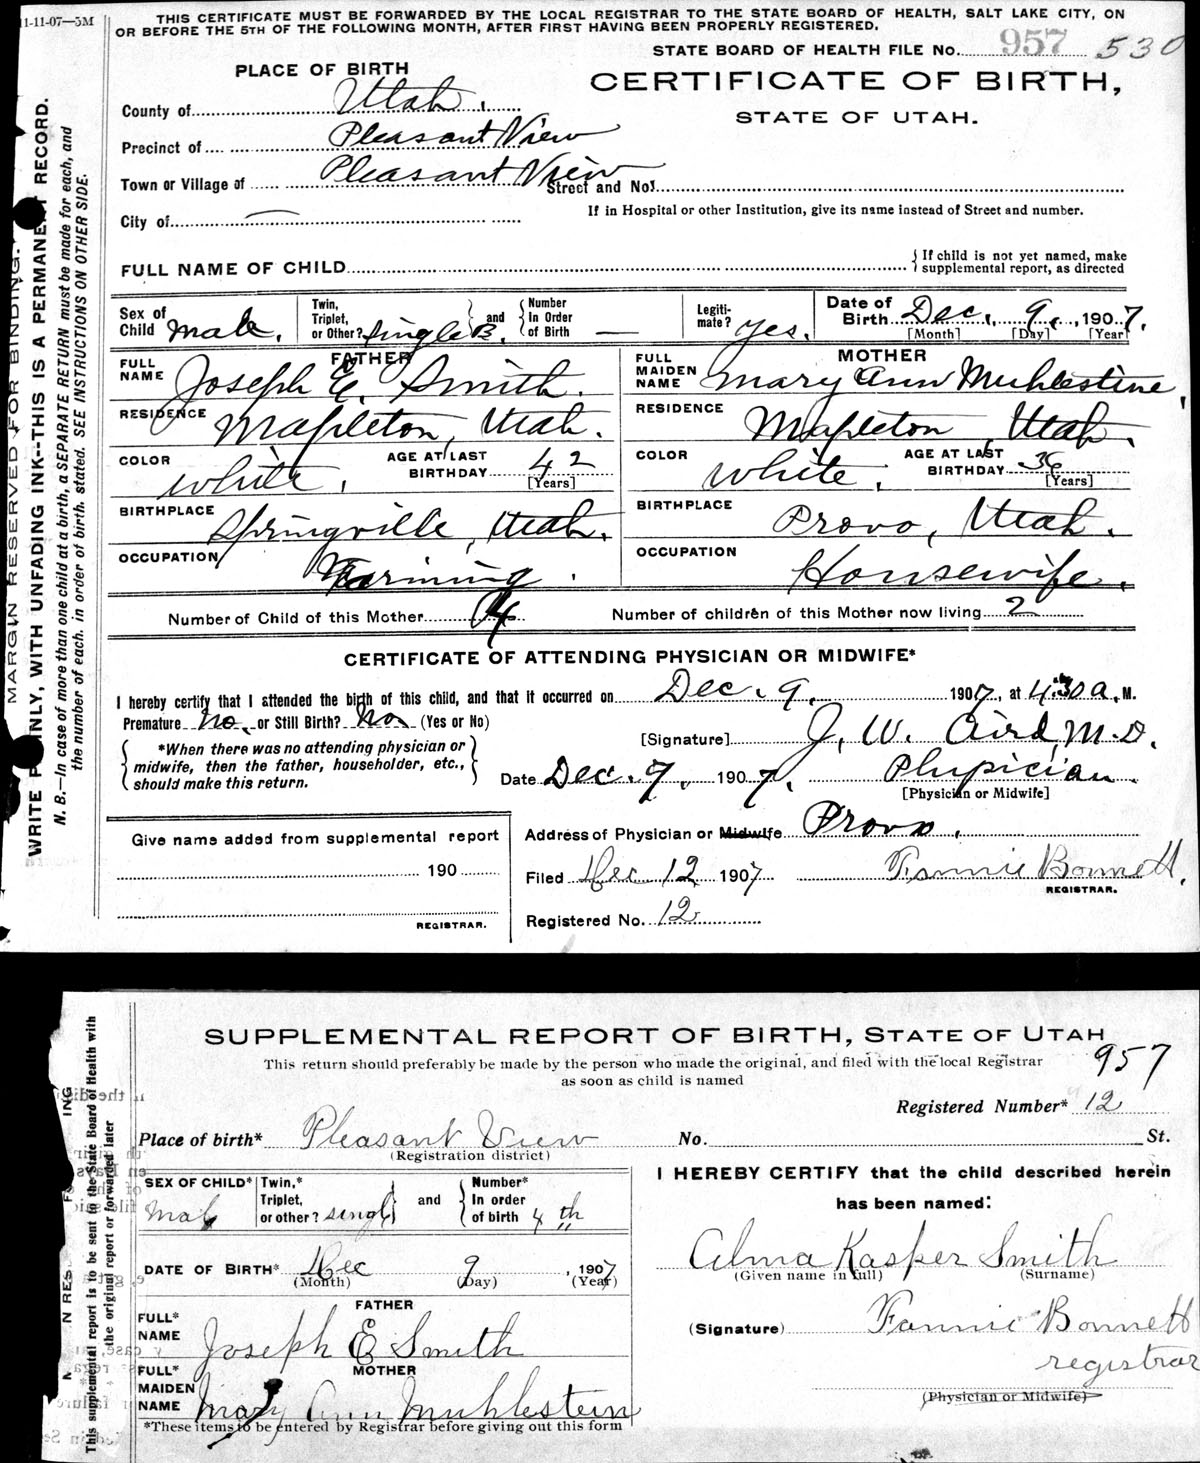 11-11-07—5M
THIS CERTIFICATE MUST BE FORWARDED BY THE LOCAL REGISTRAR TO THE STATE BOARD OF HEALTH, SALT LAKE CITY, ON
OR BEFORE THE 5TH OF THE FOLLOWING MONTH, AFTER FIRST HAVING BEEN PROPERLY REGISTERED.
STATE BOARD OF HEALTH FILE No. 957 530
PLACE OF BIRTH
CERTIFICATE OF BIRTH,
STATE OF UTAH.
County of Utah.
Precinct of Pleasant View
Town or Village of Pleasant View Street and No.
City of —
If in Hospital or other Institution, give its name instead of Street and number.
FULL NAME OF CHILD
{ If child is not yet named, make
supplemental report, as directed
Sex of Child Male. Twin, Triplet, or Other? Single B. and Number In Order of Birth — Legitimate? Yes. Date of Birth Dec. 9, 1907.
[Month] [Day] [Year]
FATHER MOTHER
FULL NAME Joseph E. Smith. FULL MAIDEN NAME Mary Ann Muhlestine,
RESIDENCE Mapleton, Utah. RESIDENCE Mapleton, Utah.
COLOR White. AGE AT LAST BIRTHDAY 42 [Years] COLOR White. AGE AT LAST BIRTHDAY 36 [Years]
BIRTHPLACE Springville, Utah. BIRTHPLACE Provo, Utah.
OCCUPATION Farming. OCCUPATION Housewife.
Number of Child of this Mother 4 Number of children of this Mother now living 2
CERTIFICATE OF ATTENDING PHYSICIAN OR MIDWIFE*
I hereby certify that I attended the birth of this child, and that it occurred on Dec. 9, 1907, at 4:30 a. M.
Premature No, or Still Birth? No. (Yes or No)
*When there was no attending physician or
midwife, then the father, householder, etc.,
should make this return.
[Signature] J. W. Aird, M.D.
Date Dec. 9, 1907. Physician.
[Physician or Midwife]
Give name added from supplemental report
190
REGISTRAR.
Address of Physician or Midwife Provo.
Filed Dec 12 1907 Fannie Bonnett,
REGISTRAR.
Registered No. 12
MARGIN RESERVED FOR BINDING.
WRITE PLAINLY, WITH UNFADING INK--THIS IS A PERMANENT RECORD.
N. B.—In case of more than one child at a birth, a SEPARATE RETURN must be made for each, and
the number of each, in order of birth, stated. SEE INSTRUCTIONS ON OTHER SIDE.
SUPPLEMENTAL REPORT OF BIRTH, STATE OF UTAH
This return should preferably be made by the person who made the original, and filed with the local Registrar
as soon as child is named
957
Registered Number* 12
Place of birth* Pleasant View No. St.
(Registration district)
SEX OF CHILD* Male Twin,* Triplet, or other? singl and Number* In order of birth 4th
DATE OF BIRTH* Dec 9, 1907
(Month) (Day) (Year)
FATHER
FULL* NAME Joseph E Smith
MOTHER
FULL* MAIDEN NAME Mary Ann Muhlestein
*These items to be entered by Registrar before giving out this form
I HEREBY CERTIFY that the child described herein
has been named:
Alma Kasper Smith
(Given name in full) (Surname)
(Signature) Fannie Bonnett
registrar
(Physician or Midwife)
This supplemental report is to be sent to the State Board of Health with
the original report or forwarded later